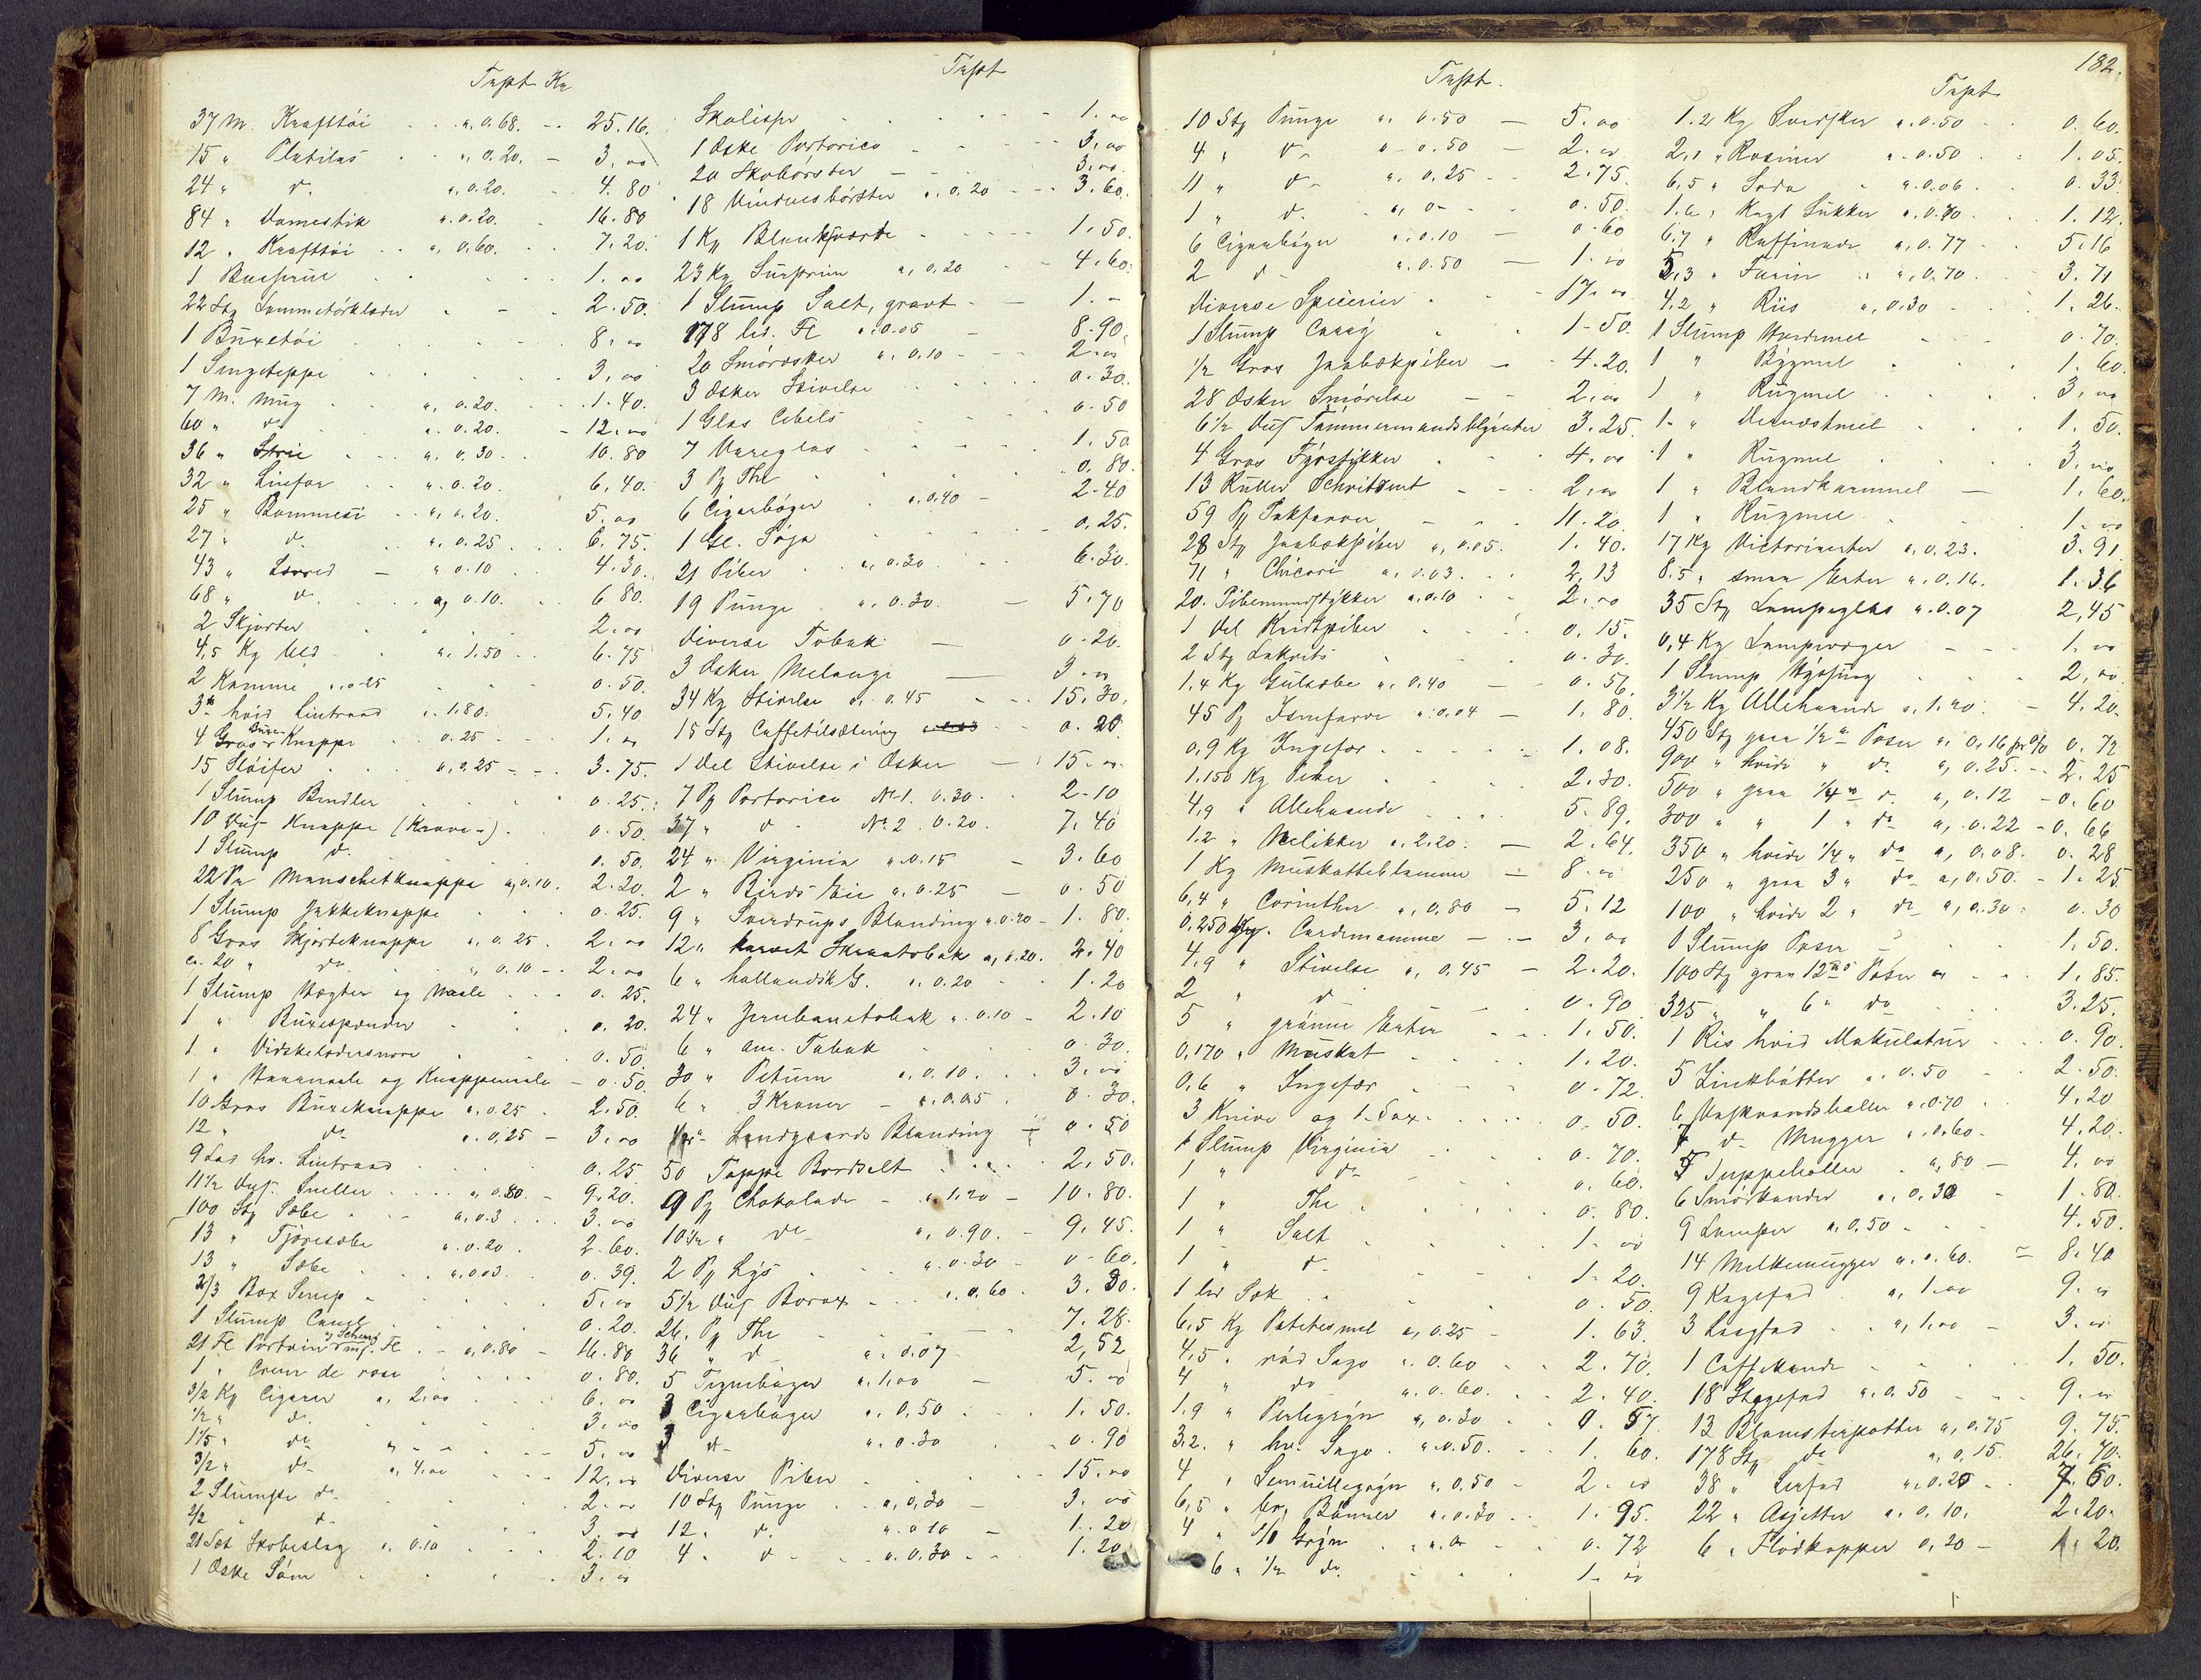 Taxt Kr
37 M. Krafttöi a, 0.68. 25.16.
15 " Platilas " 0.20. 3. oo
24 " do " 0.20. 4. 80
84 " Domestik " 0.20. 16. 80
12 " Krafttöi a, 0.60. 7. 20.
1 1. oo
22 Stk Lommetörklæder 2. 50.
1 Buxetöi 8. oo
1 Sengeteppe 3. oo
7 M. a, 0.20. 1. 40.
60 " do a. 0.20. 12. oo
36 " Strie a. 0.30 10. 80
32 " Linfor a. 0.20. 6. 40.
25 " Bommesi a, 0.20. 5. oo
27 " do a. 0.25 6. 75.
43 " Lærred a 0.10 4. 30.
68 " do a, 0.10. 6 80.
2 Skjorter 2. oo
4,5 Kg Uld a. 1.50 6. 75
2 Kamme a. 0.25 0. 50.
3 hvid Lintraad a. 1.80. 5. 40
4 Gros Buxe Knappe 0. 25 1. oo
15 Slöifer a, 0.25 3. 75.
1 Slump Bændler 0. 25.
10 Dus Knappe (Krave-) 0. 50.
1 Slump do 0. 50.
22 Pr Manschetknappe a, 0.10. 2. 20.
1 Slump Jakkeknappe 0. 25.
8 Gros Skjorteknappe a, 0.25. 2. oo
ca. 20 " do a, 0.10 2. oo
1 Slump Hægter og Maler 0. 25.
1 " Buxespænder 0. 20.
1 " Vidskelædersnore 0. 50.
1 " Haarnaale og Knappenaale 0. 50
10 Gros Buxeknappe a, 0.25 2. 50.
12 " do a. 0.25 3. oo
9 Lod hv. Lintraad 0. 25
11½ Dus. Sneller a, 0.80. 9. 20.
100 Stk Sæbe a, 0.3 3. oo
13 " Tjæresæbe a. 0.20. 2. 60.
13 " Sæbe a. 003. 0. 39.
2/3 Box Senep 5. oo
1 Slump Canel 0. 20.
21 Fl Portvin og Scherry m. Fl a, 0.80 16. 80
1 " Crem de rose 0. 80.
3/2 Kg Cigarer a, 2. oo 6. oo
½ " do 3. oo
1/5 " do 5. oo
3/2 " do a, 4. oo 12. oo
2 Slumpe do 2. oo
2/2 " do 3. oo
21 Set Skobeslag a, 0.10 2. 10
1 Æske Söm 3. oo
Taxt
Skolisper 1. oo
1 Æske Portorico 3. oo
20 Skobörster 3. oo
18 Vinduesbörster a. 0.20 3. 60.
1 Kg Blanksværte 1. 50.
23 Kg Surprim a, 0.20 4. 60.
1 Slump Salt, grovt 1. -
178 lid. Fl a. 0.05 8. 90.
20 Smöræsker a, 0.10 2. oo
3 Æsker Stivelse 0. 30.
1 Glas Cibels 0. 50
7 Vareglas 1. 50
3 Pk The 0. 80.
6 Cigarbøger a. 0.40 2. 40
1 Gl. Soja 0. 25.
21 Piber a. 0.30 6. 30.
19 Punge a. 0.30. 5. 70
diverse Tobak 0. 20.
3 Æsker Melange 3. oo
34 Kg Stivelse a. 0.45 15. 30.
15 Stk Caffetilsætning 0. 20
1 Del Stivelse i Æsker 15. oo
7 Pk Portorico No 1. 0.30. 2. 10
37 " do No 2. 0.20. 7. 40
24 " Virginia a. 0.15 3. 60
2 " Birds Eie a. 0.25 0. 50
9 " Sverdrups Blanding a. 0.20 1. 80.
12 " karvet Skraatobak a, 0.20. 2. 40
6 " hollandsk G. a. 0.20 1. 20
24 " Jernbanetobak a. 0.10 2. 10
6 " am. Tobak 0. 30.
30 " Petum a, 0.10. 3. oo
6 " 3 Kroner a. 0.05 0. 30.
Landgaards Blanding 0. 50
50 Toppe Bordsalt 2. 50.
9 Pk Chokolade a. 1.20 10. 80.
10½ " do a, 0.90. 9. 45.
2 Pk Lys a. 0.30 0. 60.
5½ Dus Borax a. 0.60. 3. 30.
26. Pk The 7. 28.
36 " do a. 0.07 2, 52
5 a. 1. oo 5. oo
3 Cigarbøger a. 0.50 1. 50.
3 do a. 0.30 0. 90
diverse Piber 15. oo
10 Stk Punge a, 0.30 3. oo
12. do a. 0 10 1. 20
4. do a. 0.30 1. 20
Taxt.
10 Stk Punge a. 0.50 5. oo
4 " do a. 0.50 2. oo
11 " do a. 0.25 2. 75.
1 " do a, 0 0. 50.
6 Cigarbøger a. 0.10 0. 60
2 do a. 0.50 1. oo
diverse Specerier 17. oo
1 Slump 1. 50.
½ Gros Jarbækpiber 4. 20.
28 Æsker Smörelse 2. oo
6½ Dus Tømmermandsblyanter 3. 25.
4 Gros Fyrstykker 4. oo
13 Ruller 2. oo
59 Pk Takfarver 11. 20
28 Stk Jarbækpiber a, 0.05. 1. 40.
71 " Chicori a, 0.03. 2, 13
20. Pibemundstykker a, 0.10 2. oo
1 Del Kridtpiber 0. 15.
2 Stk Lakrits 0. 30
1,4 Kg Gulsæbe a, 0.40 0. 56.
45 Pk Isenfarve a. 0.04 1. 80.
0,9 Kg Ingefær 1. 08.
1.150 Kg Peber 2. 30.
4,9 " Allehaande 5. 89.
1.2 " Nelliker a. 2.20. 2. 64.
1 Kg Muskatteblomme 8. oo
6,4 " Corinther a, 0.80 5. 12
0,250 Kg. Cardemomme 3. oo
4.9 " Stivelse a, 0.45 2. 20.
2 " do 0. 90
5 " grönne Erter 1. 50.
0,170 " Muskat 1. 20.
0,6 " Ingefær 0. 72.
3 Knive og 1 Sax. 0. 50.
1 Slump Virginia 0. 70.
1 " do 0. 60.
1 " The 0. 80.
1 " Salt 1. oo
1 " do 1. 20.
1 lid Sæk 0. 50.
6,5 Kg Potetesmel a, 0.25 1. 63.
4,5 " röd Sago a. 0.60 2. 70.
4 " do a. 0.60. 2. 40.
1.9 " Perlegryn a, 0.30 0. 57
3.2. " hv. Sago. a. 0.50. 1. 60.
4 " Semuillegryn a. 0.50 2. oo
6,5 " br. Bönner a. 0.30 1. 95.
4 " Gryn 0. 72
6 " ½ do 1. oo
182.
Taxt
1.2 Kg Svedsker a. 0.50 0. 60.
2,1 " Rosiner a. 0.50 1. 05.
6,5 " Soda a. 0.06 0. 33
1.6 " Kagl Sukker a. 0.70 1. 12.
6.7 " Raffinade a, 0.77 5. 16
5,3 " Farin a, 0.70. 3. 71
4.2 " Riis a, 0.30 1. 26.
1 Slump Hvedemel 0. 70.
1 " Bygmel 1. 60.
1 " Rugmel 3. oo
1 " 1. 50.
1 " Rugmel 3. oo
1 " Blandkornmel 1. 60.
1 " Rugmel 1. oo
17 Kg Victoriaerter a, 0.23. 3. 91
8.5 " smaa Erter a. 0.16. 1. 36
35 Stk Lampeglas a. 0.07 2, 45
0,4 Kg Lampevæger 1. oo
1 Slump 2. oo
3½ Kg Allehaande a. 1.20. 4. 20.
450 Stk graa ½ Poser a, 0.16 pr % 0. 72
900 " hvide " do a, 0.25. 2. 25
500 " graa ¼ do a, 0.12 0. 60
300 " " 1 " do a, 0.22 0. 66
350 " hvide ¼ " do a, 0.08. 0. 28
250 " graa 3 " do a, 0.50. 1. 25
100 " hvide 2 " do a, 0.30 0. 30
1 Slump Poser 1. 50.
100 Stk graa 12 Poser 1. 85.
325 " " 6 " do 3. 25.
1 Ris hvid Makulatur 0. 90.
5 Zinkbötter a. 0.50 2. 50.
6 Vaskvandsboller a. 0.70 4. 20
7 do Mugger a. 0.60. 4. 20.
5 Suppeboller a, 80 4. oo
6 Smörkander a. 0.30 1. 80.
9 Lamper a. 0.50 4. 50.
14 Melkemugger a. 0.60. 8. 40
9 Kagefad a, 1. oo 9. oo
3 a, 1. oo 3. oo
1 Caffekande 1. 50.
18 Stegefad a. 0.50 9. oo
13 Blomsterpotter a, 0.75 9. 75.
178 Stk do a, 0,15. 26. 70.
38 " Lerfad a. 0.20 7. 60.
22 " Asjetter a. 0.10. 2. 20.
6 " Flödkopper 0, 20 1. 20.